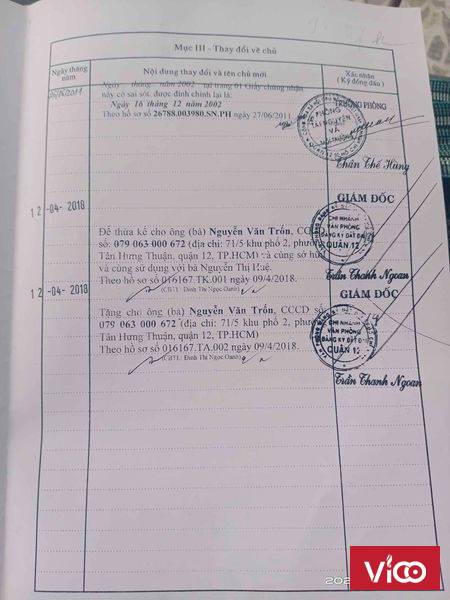 Mục III - Thay đổi về chủ
Ngày tháng năm
Nội dung thay đổi và tên chủ mới
Xác nhận
(Ký đóng dấu)
Ngày tháng năm 2002 tại trang 01 Giấy chứng nhận
này có sai sót, được đính chính lại là:
Ngày 16 tháng 12 năm 2002
Theo hồ sơ số 26788.003980.SN.PH ngày 27/06/2011
TRƯỞNG PHÒNG
PHÒNG
TÀI NGUYÊN
VÀ
MÔI TRƯỜNG
Thân Thế Hùng
12 -04- 2018
GIÁM ĐỐC
Để thừa kế cho ông (bà) Nguyễn Văn Trốn, CCCD
số: 079 063 000 672 (địa chỉ: 71/5 khu phố 2, phường
Tân Hưng Thuận, quận 12, TP.HCM) và cùng sở hữu
và cùng sử dụng với bà Nguyễn Thị Huệ.
Theo hồ sơ số 016167.TK.001 ngày 09/4/2018.
(CBTL: Đinh Thị Ngọc Oanh)
CHI NHÁNH
VĂN PHÒNG
ĐĂNG KÝ ĐẤT ĐAI
QUẬN 12
Trần Thanh Ngoan
12 -04- 2018
GIÁM ĐỐC
Tặng cho ông (bà) Nguyễn Văn Trốn, CCCD số:
079 063 000 672 (địa chỉ: 71/5 khu phố 2, phường
Tân Hưng Thuận, quận 12, TP.HCM)
Theo hồ sơ số 016167.TA.002 ngày 09/4/2018.
(CBTL: Đinh Thị Ngọc Oanh)
CHI NHÁNH
VĂN PHÒNG
ĐĂNG KÝ ĐẤT ĐAI
QUẬN 12
Trần Thanh Ngoan
202
VICO